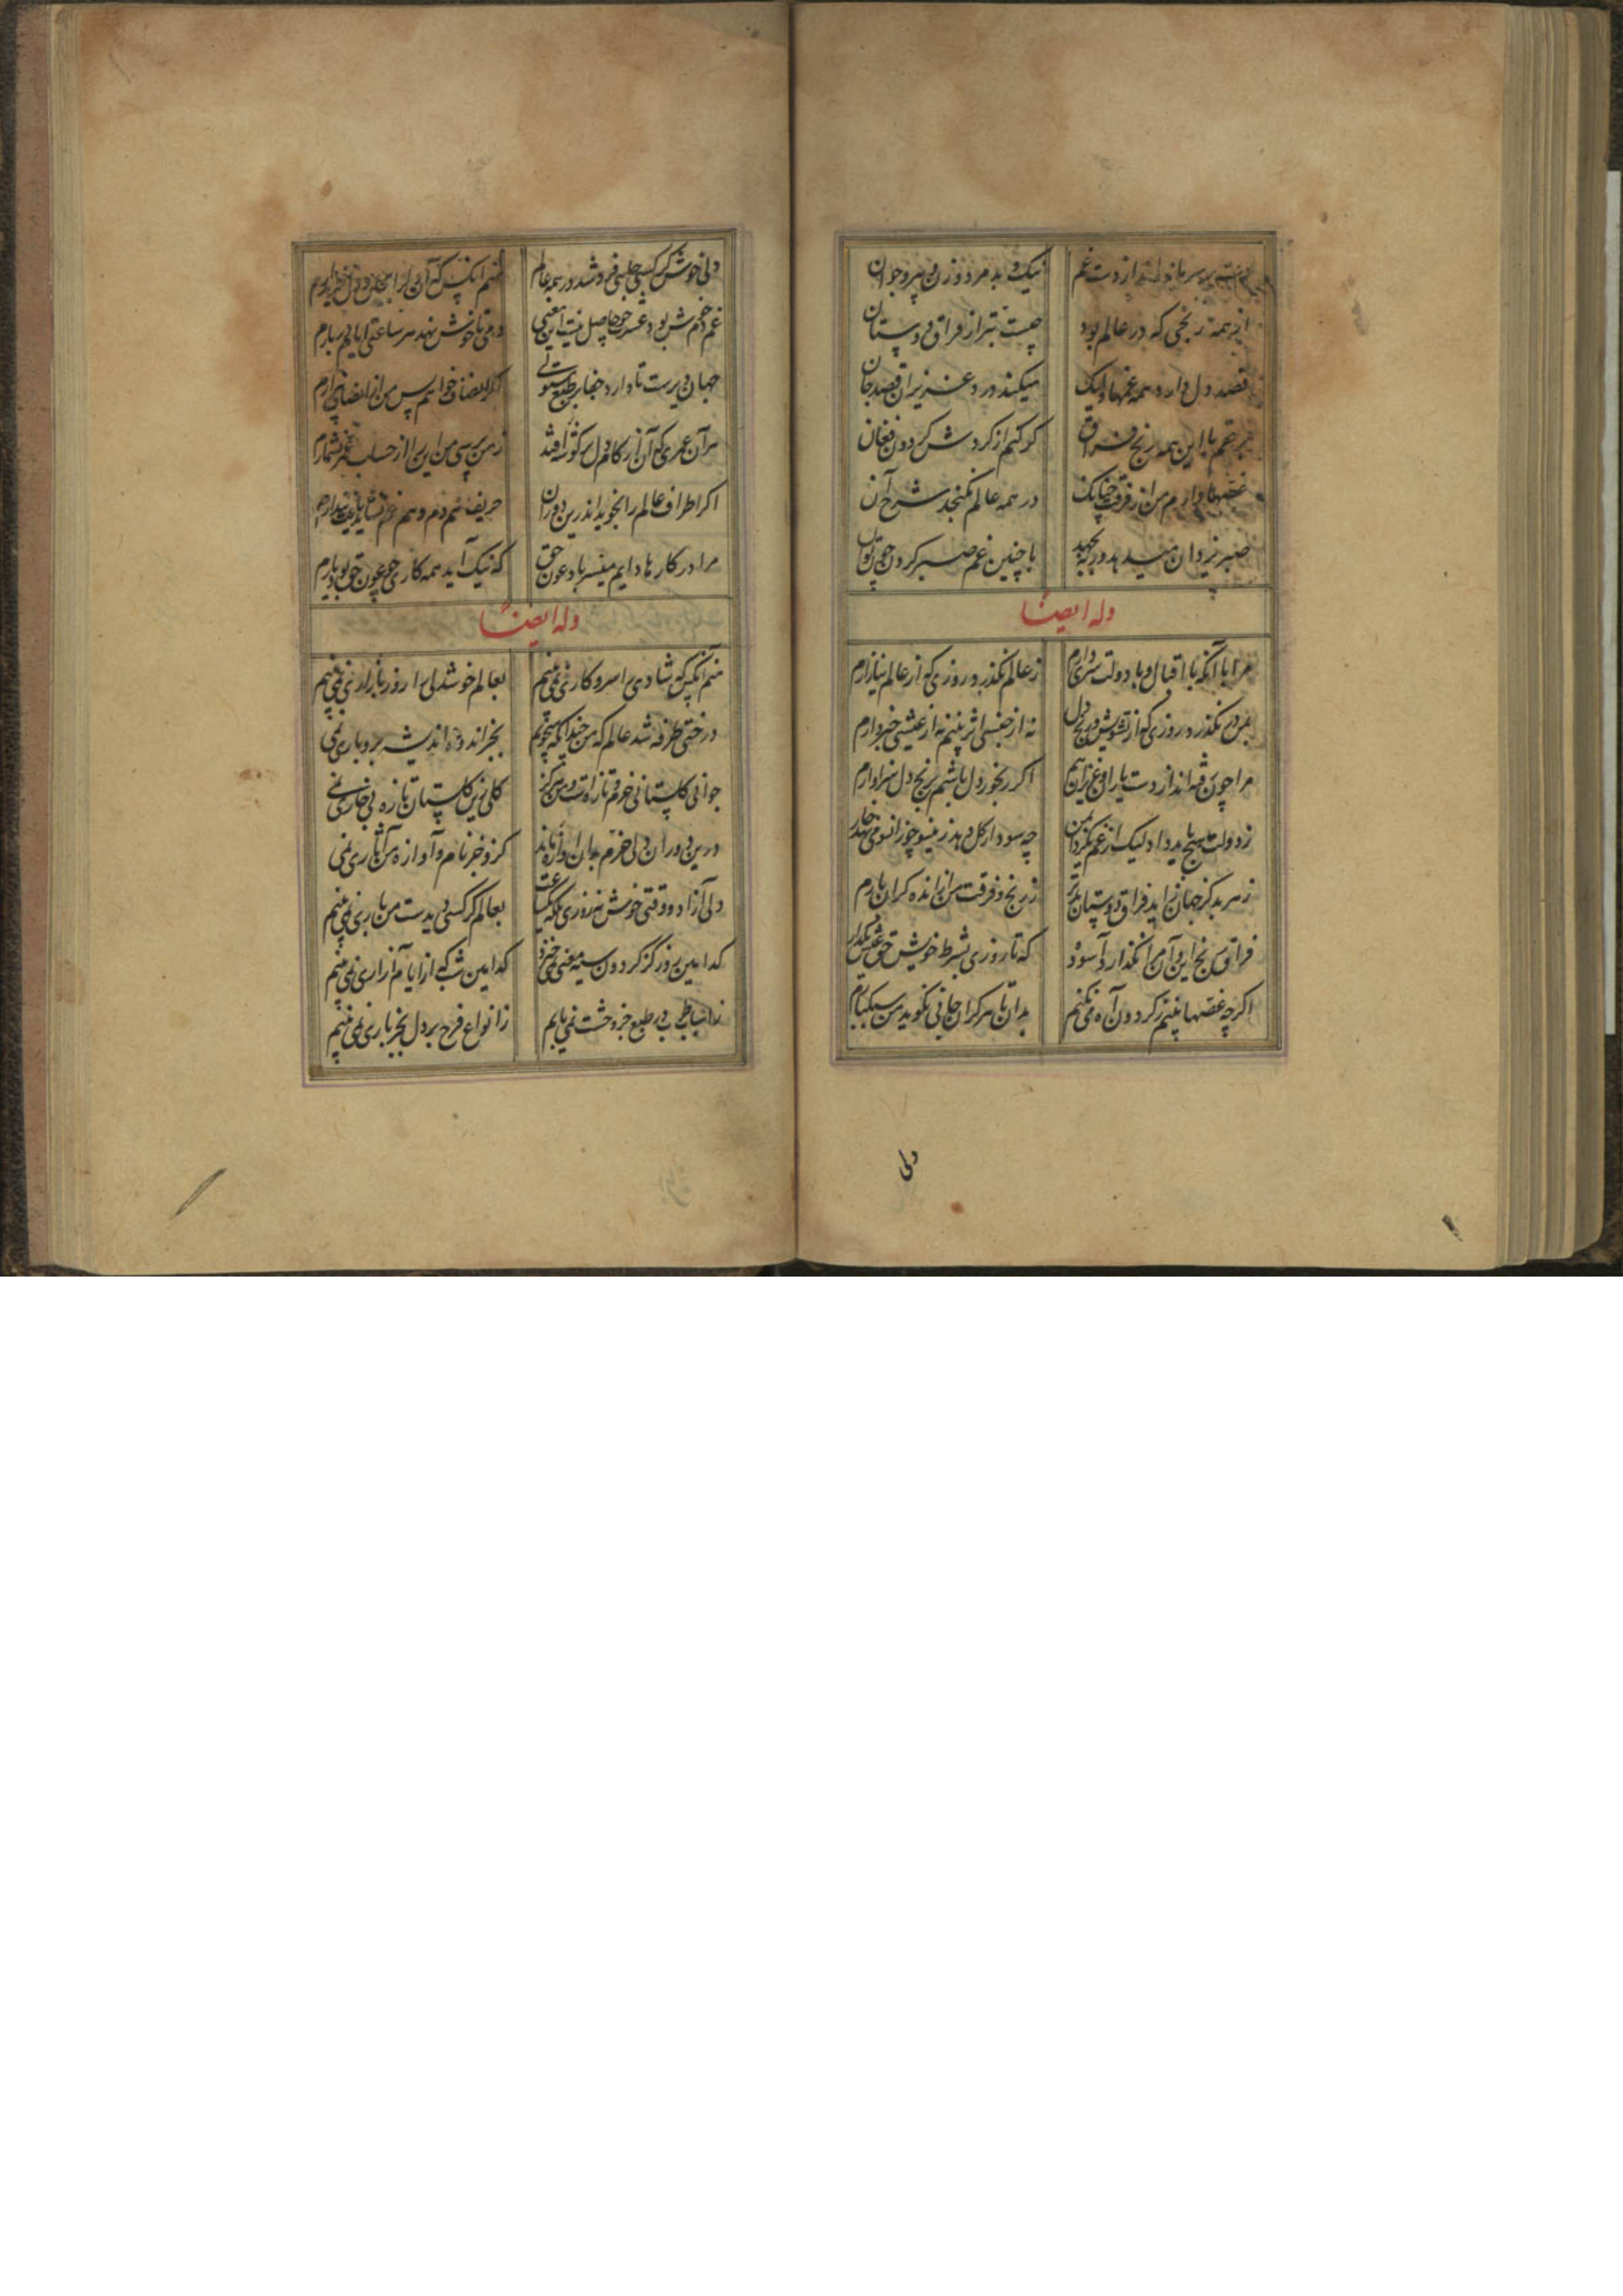 نیک و بد مرد و زن و پیر و جوان
از همه رنجی که در عالم بود چیست بتر از فراق دوستان
قصد دل دارد همه غمها ولیک میکند درد عزیزان قصد جان
با این همه رنج فراق کر کنم از کردش کردون فغان
غصها دارم من از فرقت چنانک در همه عالم نکنجد شرح آن
صبر یزدان میدهد ورنه بجهد با چنین غم صبر کردن چون توان
وله ایضا
مرا با آنکه با اقبال و با دولت سری دارم ز عالم نکذرد روزی که از عالم نیازارم
بمن بر نکذرد روزی که از تشویش و رنج دل نه از جنسی اثر بینم نه از عیشی خبر دارم
مرا چون وقه اند از دست یاران عزیز از هم اکر رنجور دل باشم برنج دل سزاوارم
ز دولت هیچ باید داد لیک از غم چه سود از کل دهد زینسو چو زانسو می نهد خارم
ز هر بد کز جهان زاید فراق دوستان بدتر ز رنج فرقت من از انده کران بارم
فراق و رنج این و آن مرا نکذارد آسوده که تا روزی بشرط خویش حق عیش بکذارم
اکرچه غصها بینم ز کردون آه می نکنم بدان تا هر کران جانی نکوید من سبکبارم
ولی
دلی خوش کر کسی جایی فروشد در همه عالم منم آنکس که آن دل را بجان و دل خریدارم
غم و خرمش بود دمی ناخوش نهد هر ساعتی ایام بر بارم
جهان دیریست تا دارد جفا بر طبع مستولی اکر انصاف خواهم پس من از انصاف بیزارم
هر آن عمری که آن از کام دل بر کوشه افتد ز من پرسی من این را از حساب عمر نشمارم
اکر اطراف عالم را بجوید اندرین دوران حریف غم
مرا در کارها دایم میسر باد عون حق که نیک آید همه کاری چو عون حق بود یارم
وله ایضا
منم آنکس که شادی را سر و کاری نمی بینم بعالم خوشدلی را روز بازاری نمی بینم
درختی طرفه شد عالم که من چندانکه می جویم بجز اندوه و اندیشه برو باری نمی
جوانی کلستانی خرم و تازه است و من هرکز کلی زین کلستان تازه بی خاری نمی
درین دوران دلی خرم بدان آوازه ماند کزو جز نام و آوازه من آثاری نمی
دلی آزاد و وقتی خوش نه روزی بلکه یکساعت بعالم کر کسی دیدست من باری نمی بینم
کدامین روز کز کردون سیه معنی نمی خیزد کدامین شب که از ایام آزاری نمی بینم
ز اسباب طرب در طبع جز وحشت نمی یابم ز انواع فرح بر دل بجز باری نمی بینم